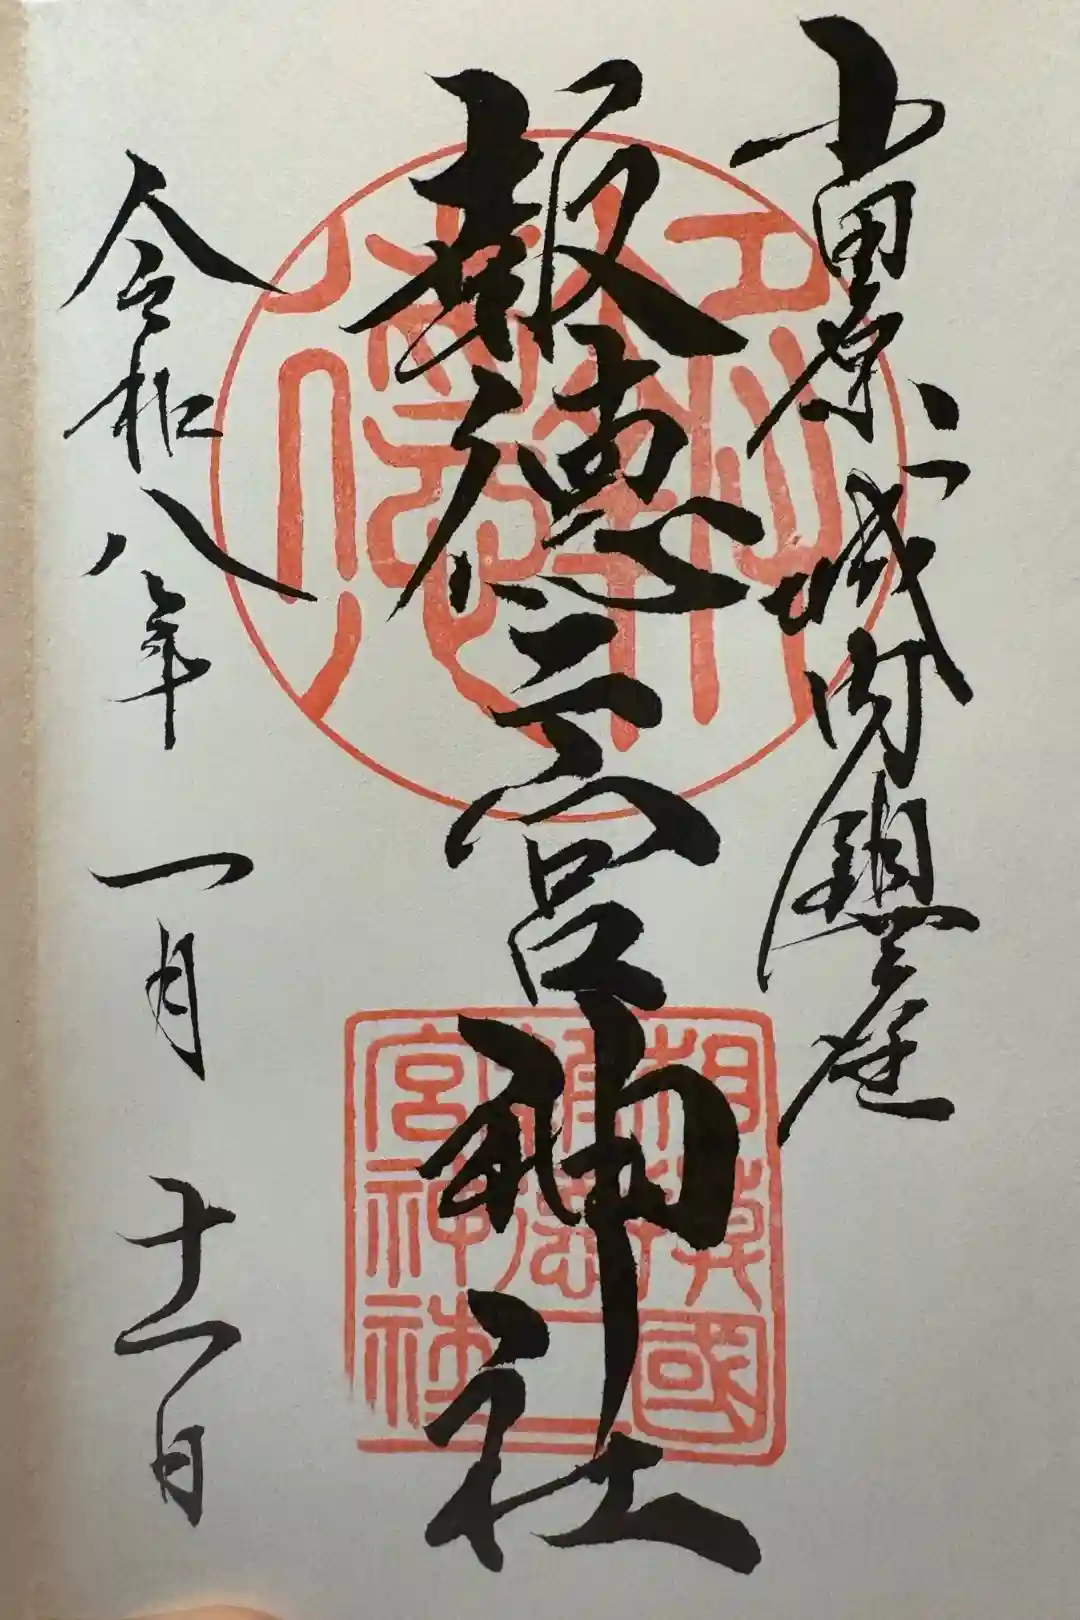 小田原城内鎮座
報徳二宮神社
令和八年一月十一日
相模國
報徳二
宮神社